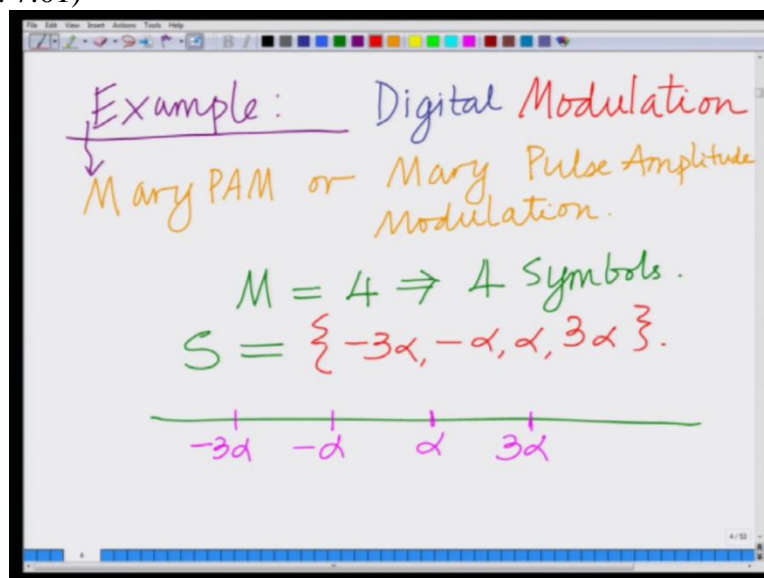 : 7:01)
File Edit View Insert Actions Tools Help
Example: Digital Modulation
Mary PAM or Mary Pulse Amplitude
Modulation.
M = 4 ⇒ 4 Symbols.
S = {-3α, -α, α, 3α}.
-3α -α α 3α
4/53
4